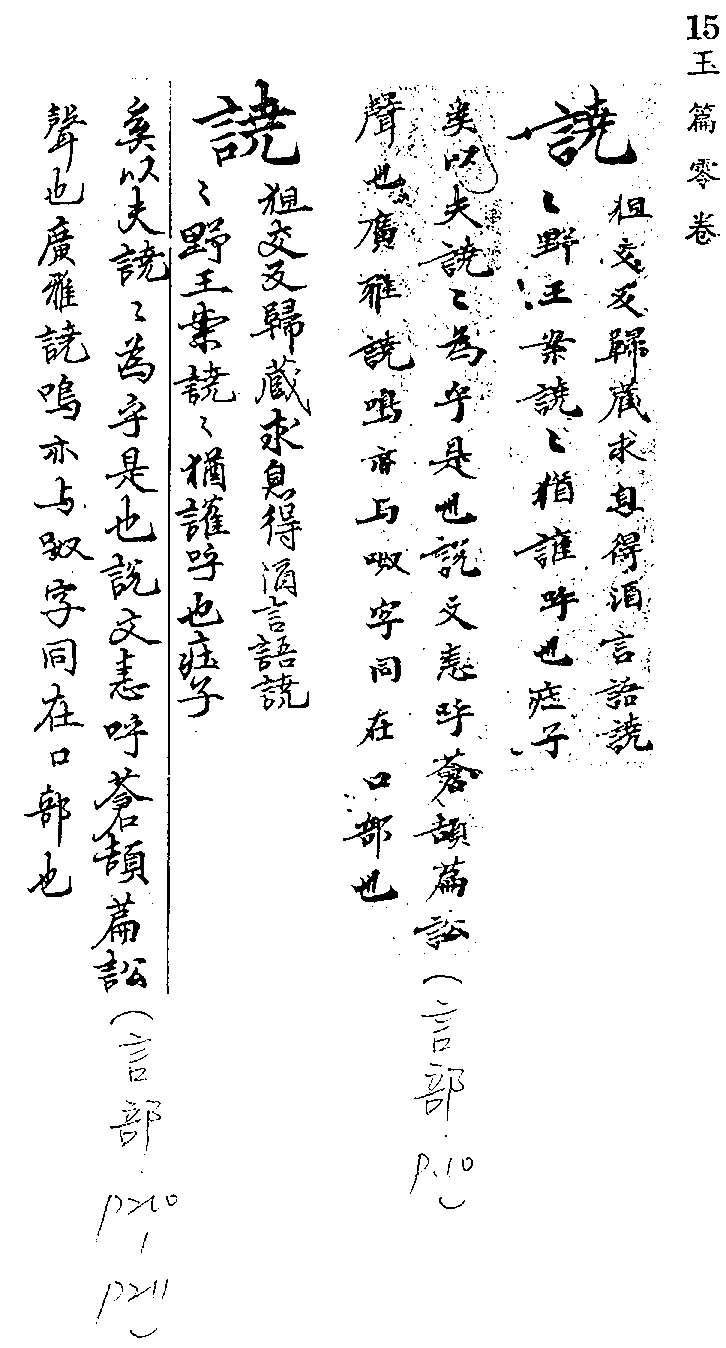 15 玉篇零卷
譊 狙交反歸藏求息得酒言語譊
〻野王案譊〻猶讙呼也莊子
奚以夫譊〻為乎是也說文恚呼蒼頡篇訟(言部.P.10)
聲也廣雅譊鳴亦与呶字同在口部也
譊 狙交反歸藏求息得酒言語譊
〻野王案譊〻猶讙呼也莊子
奚以夫譊〻為乎是也說文恚呼蒼頡篇訟(言部.P210-P211)
聲也廣雅譊鳴亦与呶字同在口部也